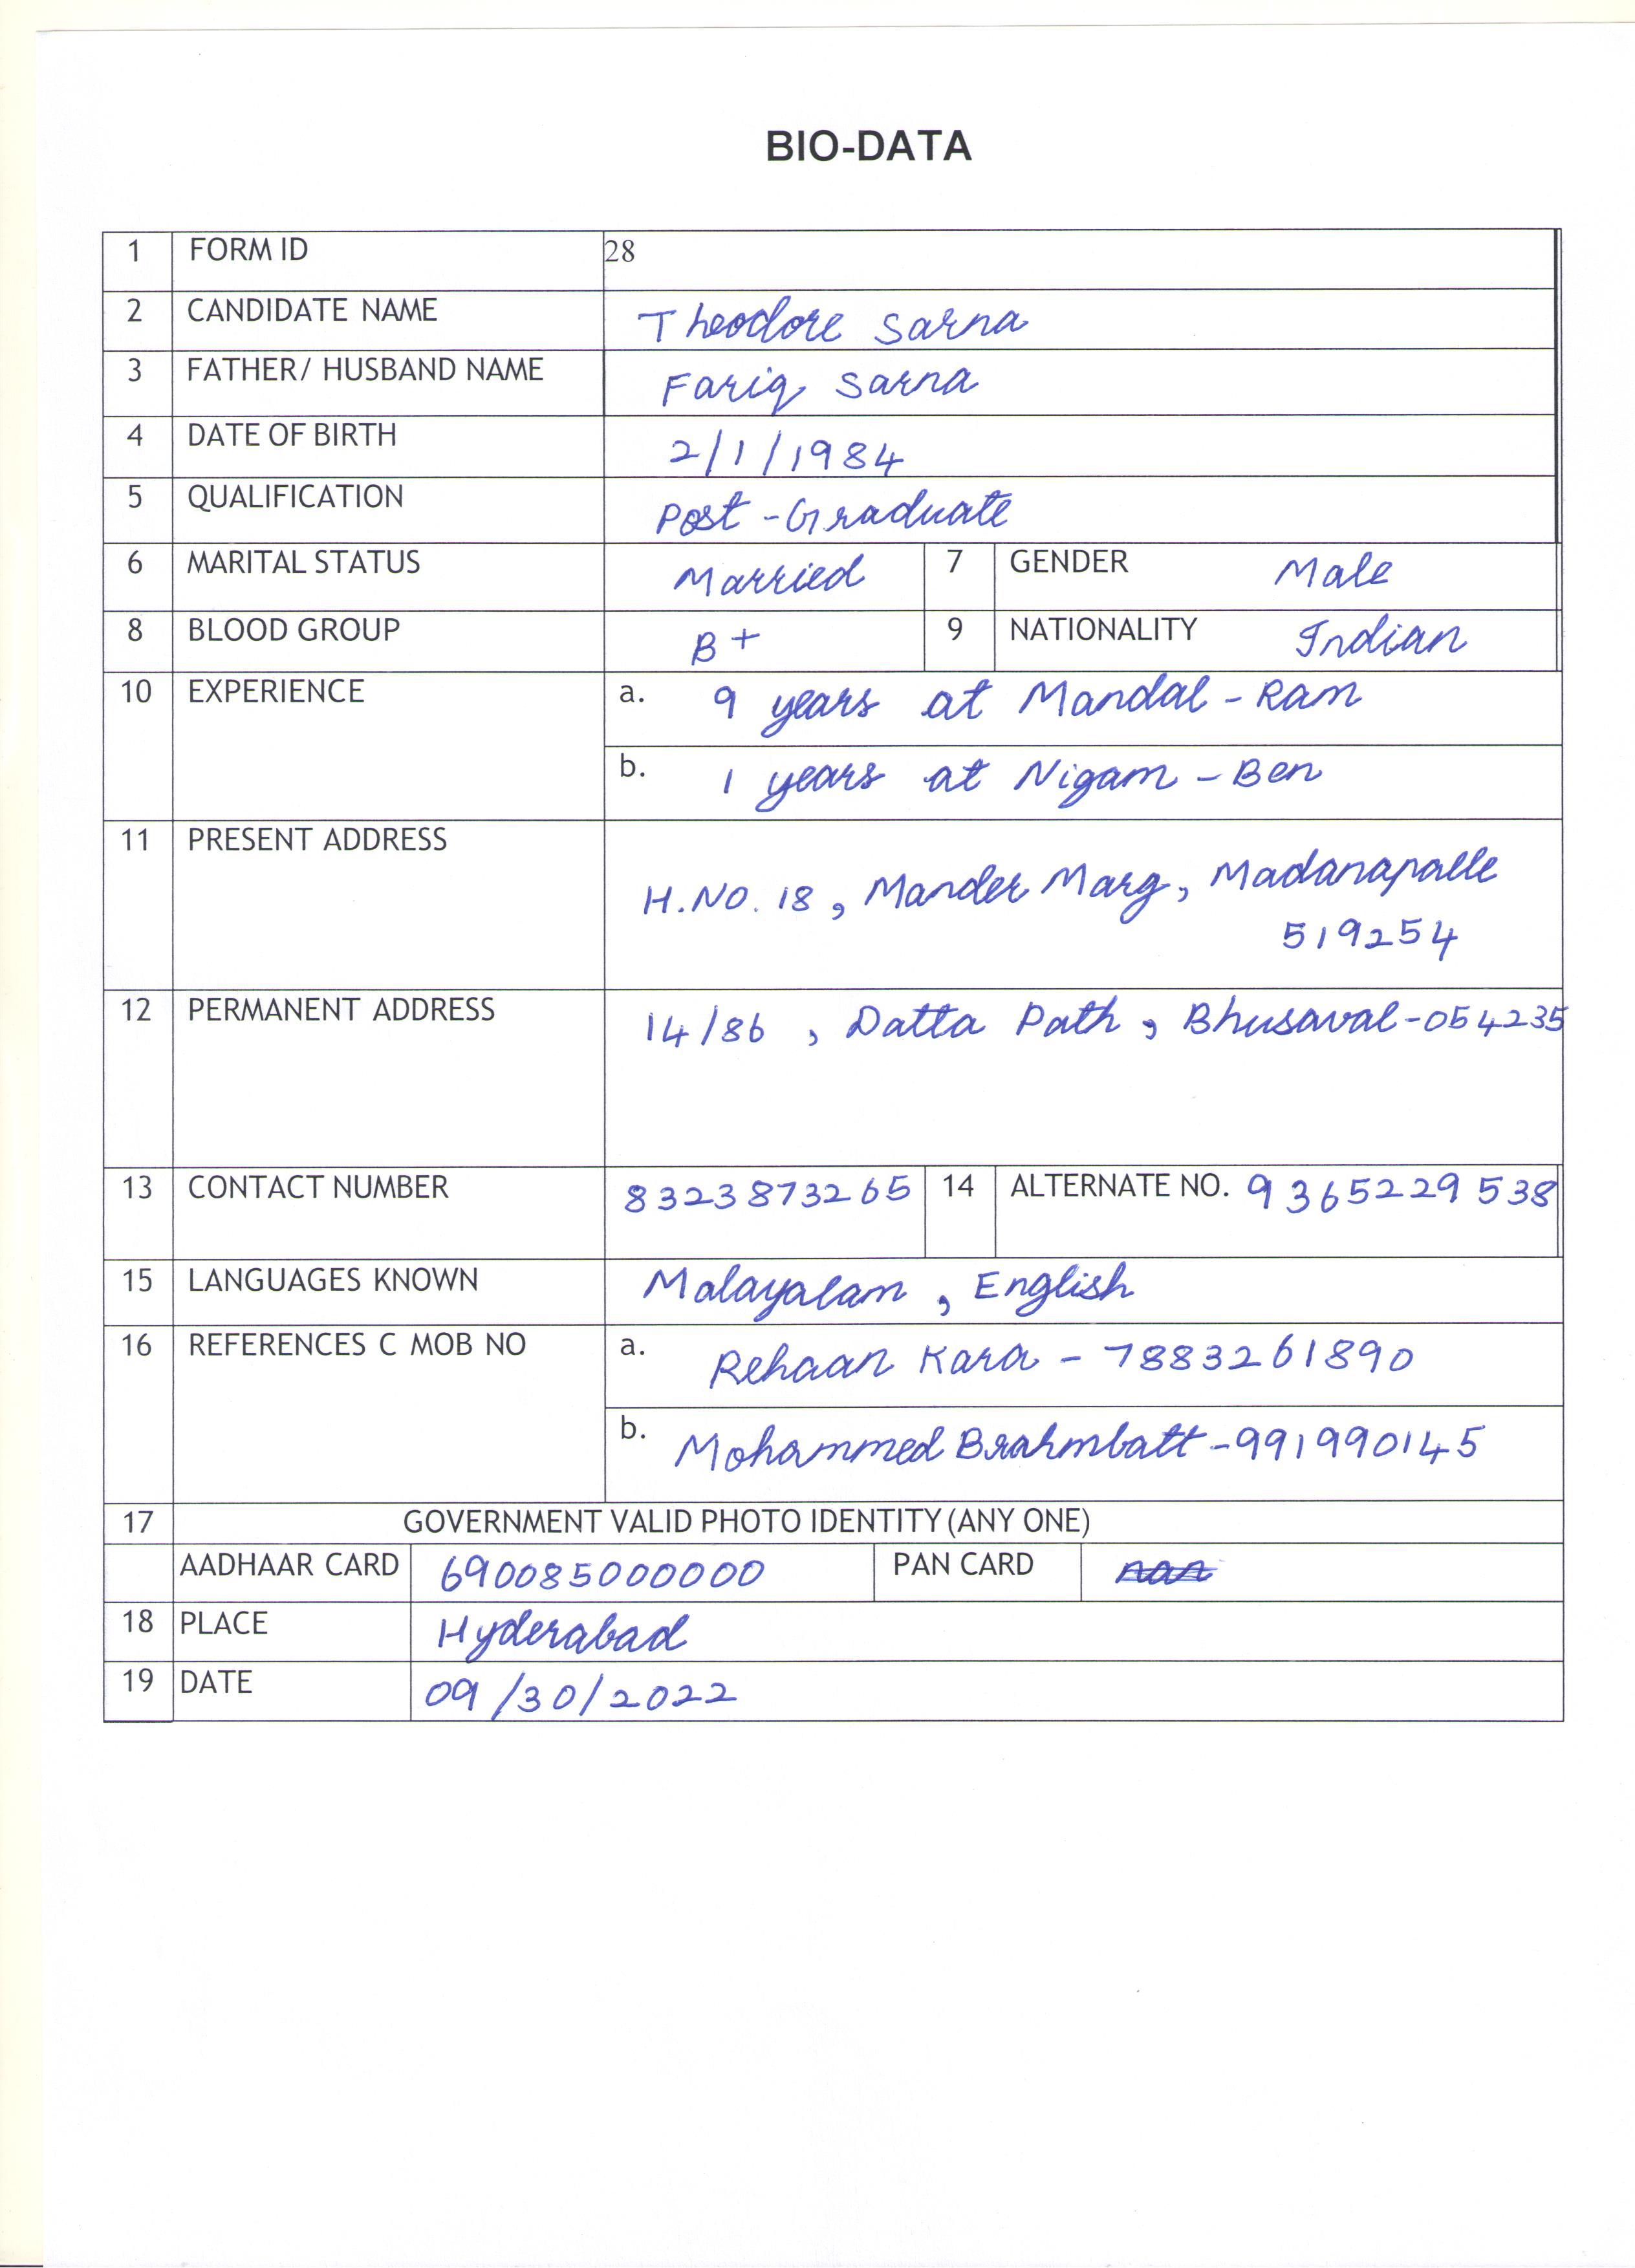 BIO-DATA
1 FORM ID 28
2 CANDIDATE NAME Theodore Sarna
3 FATHER/ HUSBAND NAME Fariq Sarna
4 DATE OF BIRTH 2/1/1984
5 QUALIFICATION Post-Graduate
6 MARITAL STATUS Married 7 GENDER Male
8 BLOOD GROUP B+ 9 NATIONALITY Indian
10 EXPERIENCE a. 9 years at Mandal-Ram
b. 1 years at Nigam-Ben
11 PRESENT ADDRESS
H.NO. 18, Mander Marg, Madanapalle
519254
12 PERMANENT ADDRESS 14/86, Datta Path, Bhusaval-054235
13 CONTACT NUMBER 8323873265 14 ALTERNATE NO. 9365229538
15 LANGUAGES KNOWN Malayalam, English
16 REFERENCES C MOB NO a. Rehaan Kara - 7883261890
b. Mohammed Brahmbatt-991990145
17 GOVERNMENT VALID PHOTO IDENTITY(ANY ONE)
AADHAAR CARD 690085000000 PAN CARD nan
18 PLACE Hyderabad
19 DATE 09/30/2022